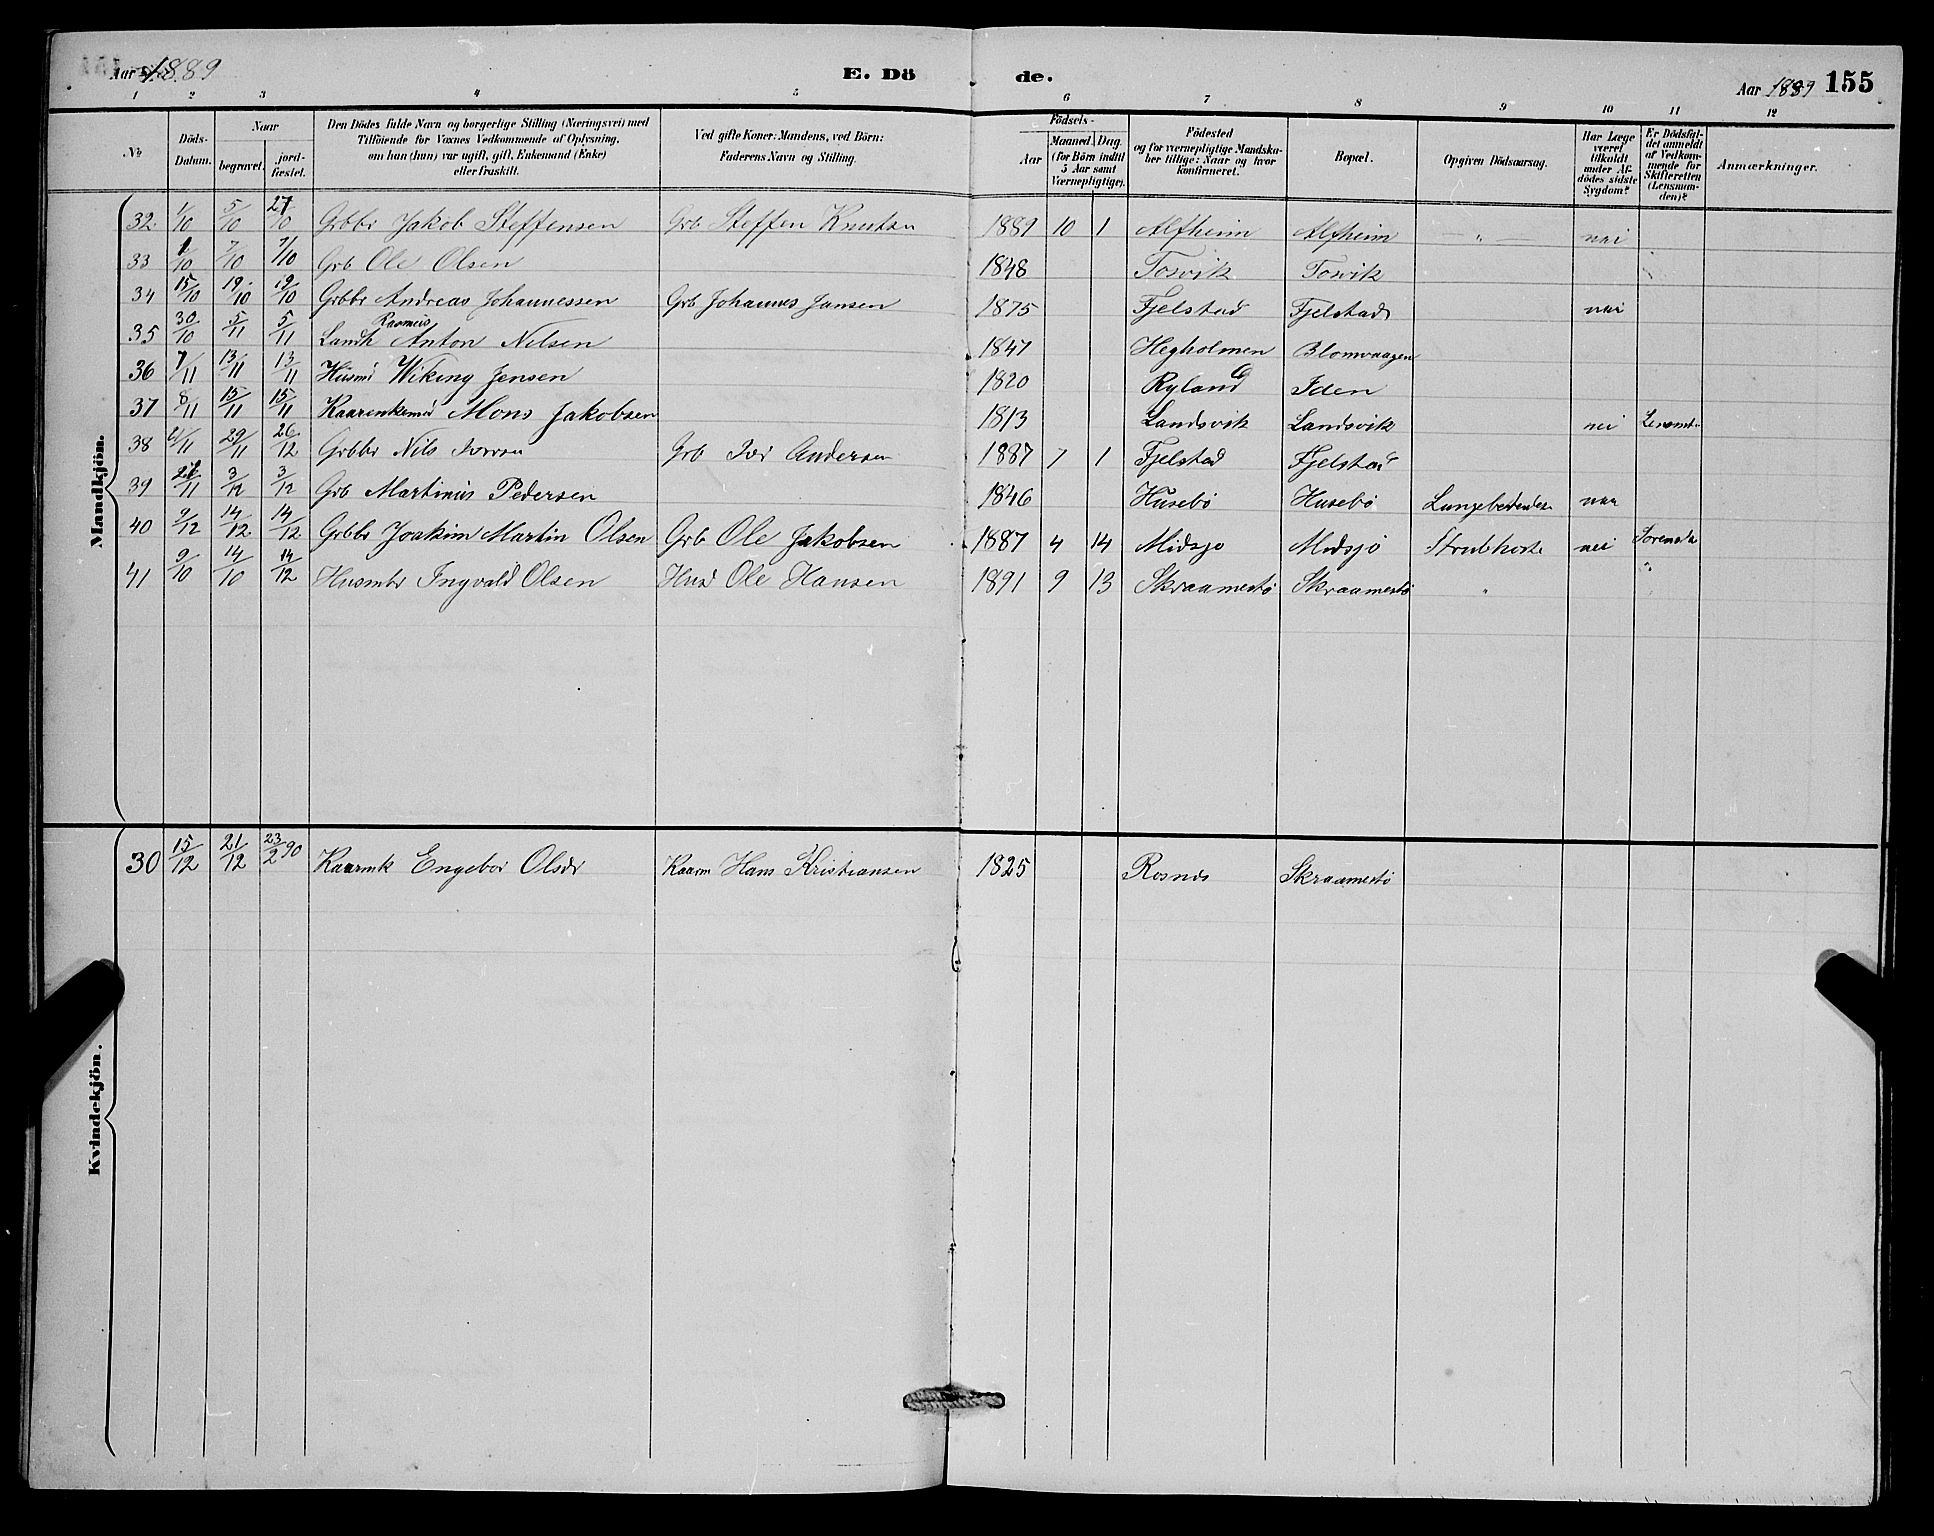 Aar 1889 E. Dö de. Aar 1889 155
1 2 3 4 5 6 7 8 9 10 11 12
No Döds-Datum. Naar begravet. jord-fæstet. Den Dödes fulde Navn og borgerlige Stilling (Næringsvei) med Tilföiende for Voxnes Vedkommende af Oplysning, om han (hun) var ugift, gift, Enkemand (Enke) eller fraskilt. Ved gifte Koner: Mandens, ved Börn: Faderens Navn og Stilling. Födsels- Aar Maaned Dag (for Börn indtil 5 Aar samt Værnepligtige). Födested og for værnepligtige Mandskaber tillige: Naar og hvor konfirmeret. Bopæl. Opgiven Dödsaarsag. Har Læge været tilkaldt under Afdödes sidste Sygdom? Er Dödsfaldet anmeldt af Vedkommende for Skifteretten (Lensmanden)? Anmærkninger.
Mandkjön.
32. 1/10 5/10 27/10 Grbbr Jakob Steffensen Grb Steffen Knutsen 1889 10 1 Alfheim Alfheim — " — nei
33 1/10 7/10 7/10 Grb Ole Olsen 1848 Tosvik Tosvik
34 15/10 19/10 19/10 Grbbr Andreas Johannessen Grb Johannes Jansen 1875 Fjelstad Fjelstad nei
35 30/10 5/11 5/11 Landh Rasmus Anton Nilsen 1847 Hegholmen Blomvaagen
36 7/11 13/11 13/11 Husm Wiking Jensen 1820 Ryland Iden
37 8/11 15/11 15/11 Kaarenkem Mons Jakobsen 1813 Landsvik Landsvik nei
38 21/11 29/11 26/12 Grbbr Nils Iversen Grb Iver Andersen 1887 7 1 Fjelstad Fjelstad
39 /11 3/12 3/12 Grb Martinus Pedersen 1846 Husebö Husebö
40 9/12 14/12 14/12 Grbbr Joakim Martin Olsen Grb Ole Jakobsen 1887 4 14 Midsjo Midsjö Strubhoste nei
41 9/10 14/10 14/12 Husmbr Ingvald Olsen Husm Ole Hansen 1891 9 13 Skraamestö Skraamestö "
Kvindekjön.
30 15/12 21/12 23/2 90 Kaarmk Engebor Olsdr Kaarm Hans Kristiansen 1825 Rosnes Skraamestö